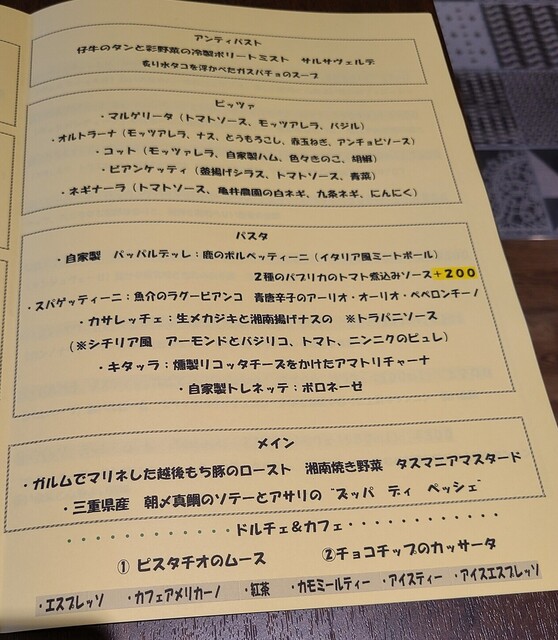 アンティパスト
仔牛のタンと彩野菜の冷製ボリートミスト サルサヴェルデ
炙り水タコを浮かべたガスパチョのスープ
ピッツァ
・マルゲリータ（トマトソース、モッツアレラ、バジル）
・オルトラーナ（モッツアレラ、ナス、とうもろこし、赤玉ねぎ、アンチョビソース）
・コット（モッツァレラ、自家製ハム、色々きのこ、胡椒）
・ビアンケッティ（釜揚げシラス、トマトソース、青菜）
・ネギナーラ（トマトソース、亀井農園の白ネギ、九条ネギ、にんにく）
パスタ
・自家製 パッパルデッレ：鹿のポルペッティーニ（イタリア風ミートボール）
2種のパプリカのトマト煮込みソース+200
・スパゲッティーニ：魚介のラグービアンコ 青唐辛子のアーリオ・オーリオ・ペペロンチーノ
・カサレッチェ：生メカジキと湘南揚げナスの ※トラパニソース
（※シチリア風 アーモンドとバジリコ、トマト、ニンニクのピュレ）
・キタッラ：燻製リコッタチーズをかけたアマトリチャーナ
・自家製トレネッテ：ボロネーゼ
メイン
・ガルムでマリネした越後もち豚のロースト 湘南焼き野菜 タスマニアマスタード
・三重県産 朝〆真鯛のソテーとアサリの ゛ズッパ ディ ペッシェ゛
・・・・・・・・・・・・ドルチェ&カフェ・・・・・・・・・・・・
① ピスタチオのムース ②チョコチップのカッサータ
・エスプレッソ ・カフェアメリカーノ ・紅茶 ・カモミールティー ・アイスティー ・アイスエスプレッソ